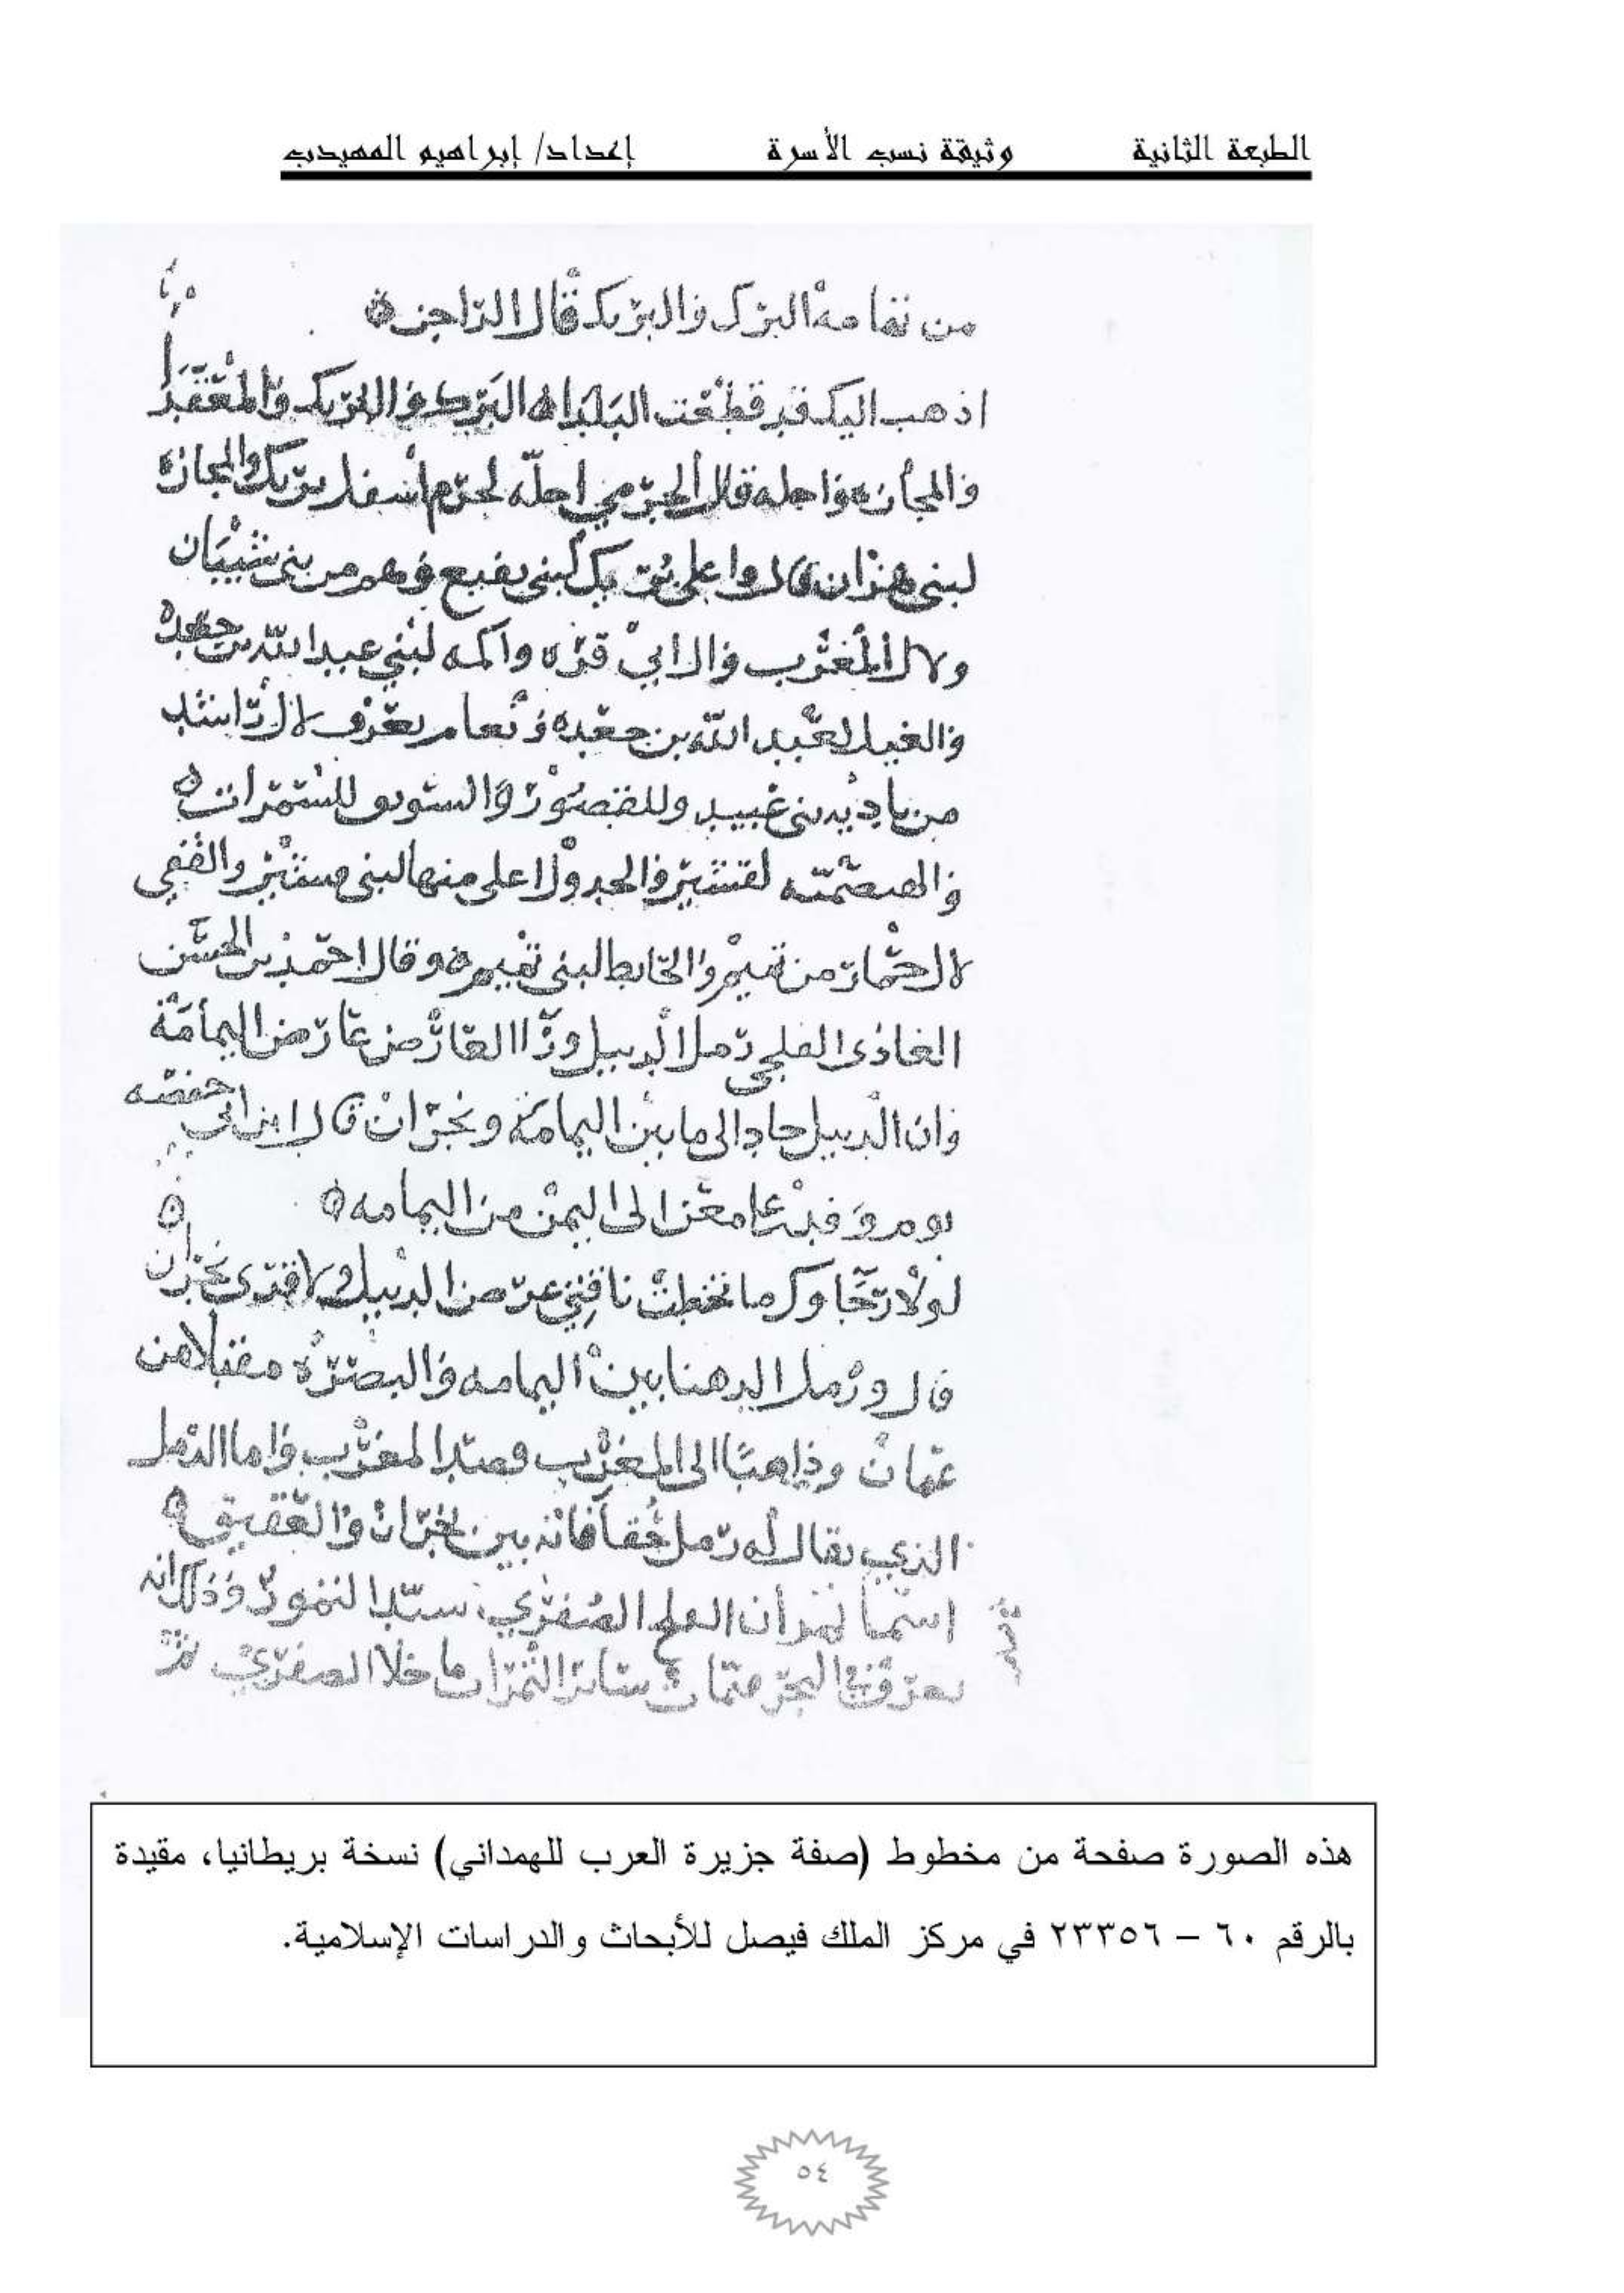 الطبعة الثانية وثيقة نسب الأسرة إعداد/ إبراهيم المهيدب
من البرك والبريك قال الراجز
اذهب اليك قد قطعت البلدا البرك والبريك والمعقدا
والمجازه واجله قال الجرمي اجله لجرم اسفل بريك والمجازه
لبني هزان قال واعلى بريك لبني نفيع وهم من بني شيبان
ولال المغترب وال ابي قره واكمه لبني عبد الله بن جعده
والغيل لعبيد الله بن جعده ونعام يعرف لال راشد
من باديه بني عبيد وللقصور والستوى للسمرات
والهيصميه لقشير والجدول اعلى منها لبني قشير والفقي
لال حماد من تميم والحايط لبني تميم وقال احمد بن الحسن
العادى الفلجي رمل الدبيل ورا العارض عارض اليمامة
وان الدبيل حاد الى ما بين اليمامة ونجران قال ابن ابي حفصه
يوم وفد على معن الى اليمن من اليمامه
لولا رجاوك ما تخطت ناقتي عرض الدبيل ولا قرى نجران
قال ورمل الدهنا بين اليمامه والبصره مقبلا من
عمان وذاهبا الى المغرب وصد المغرب واما الرمل
الذي يقال له رمل فانه بين نجران والعقيق
اسما تمران الفلج الصفري سيد التمور وذلك انه
البحر سائر التمرات ما خلا الصفري
هذه الصورة صفحة من مخطوط (صفة جزيرة العرب للهمداني) نسخة بريطانيا، مقيدة
بالرقم ٦٠ – ٢٣٣٥٦ في مركز الملك فيصل للأبحاث والدراسات الإسلامية.
٥٤